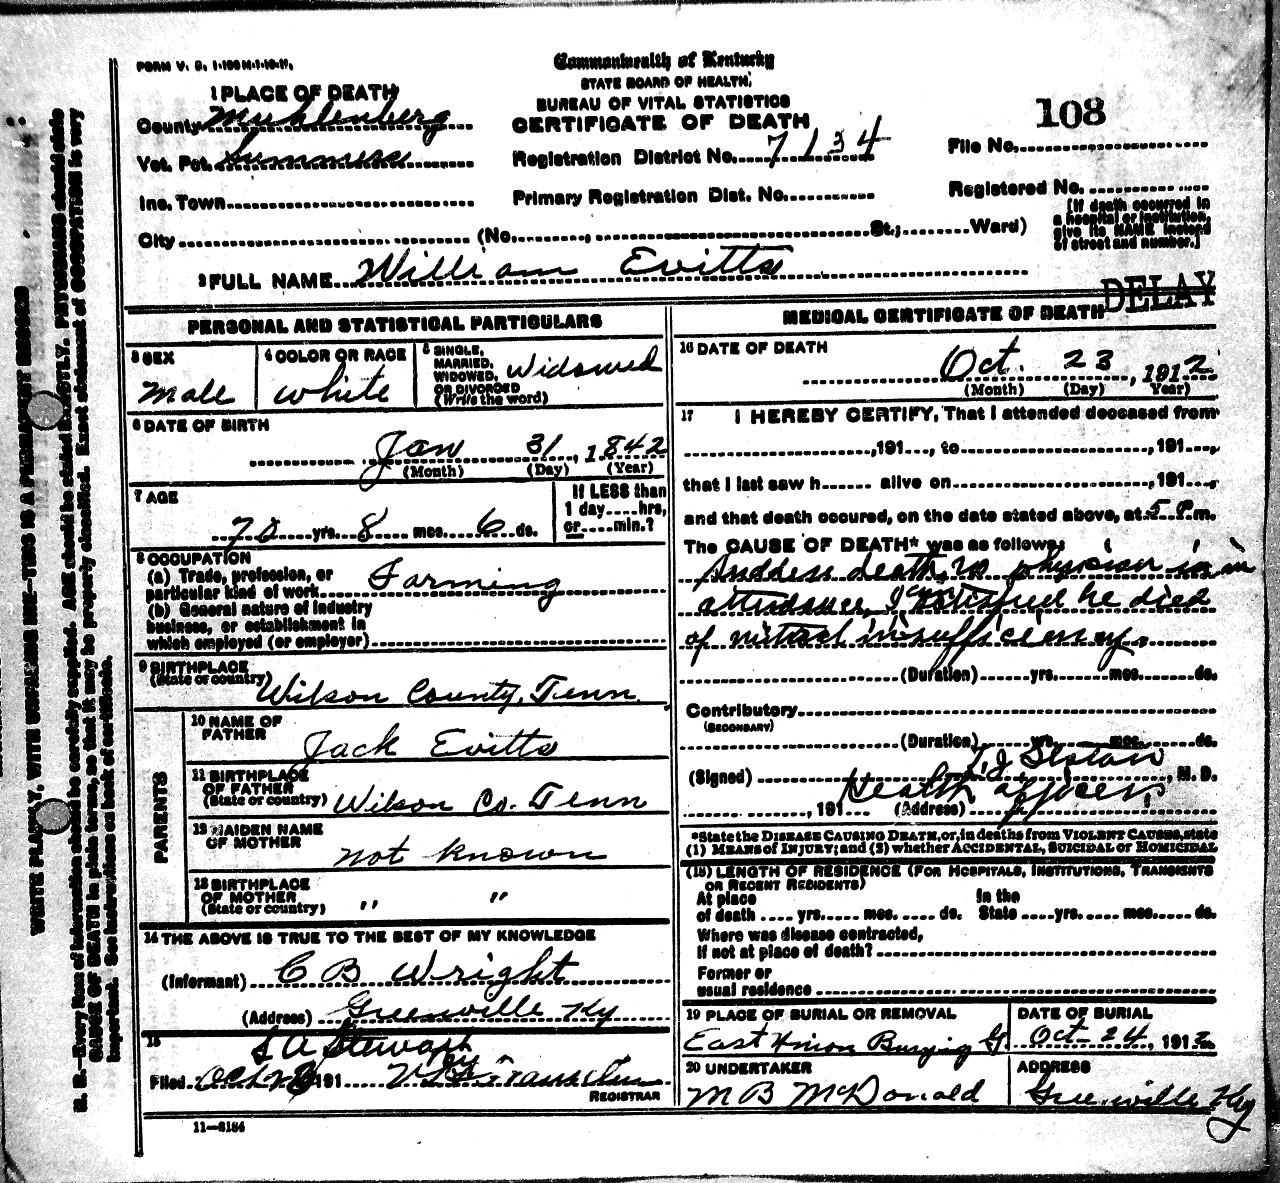 FORM V. S. 1-100 M-1-10-11.
Commonwealth of Kentucky
STATE BOARD OF HEALTH.
BUREAU OF VITAL STATISTICS
CERTIFICATE OF DEATH
108
1 PLACE OF DEATH
County Muhlenberg
Vot. Pct.
Registration District No. 7134
File No.
Inc. Town
Primary Registration Dist. No.
Registered No.
City (No. , St.; Ward)
[If death occurred in
a hospital or institution,
give its NAME instead
of street and number.]
2 FULL NAME William Evitts
DELAY
PERSONAL AND STATISTICAL PARTICULARS
3 SEX
Male
4 COLOR OR RACE
White
5 SINGLE,
MARRIED,
WIDOWED,
OR DIVORCED
(Write the word)
Widowed
6 DATE OF BIRTH
Jan 31, 1842
(Month) (Day) (Year)
7 AGE
70 yrs. 8 mos. 6 ds.
If LESS than
1 day....hrs,
or....min.?
8 OCCUPATION
(a) Trade, profession, or
particular kind of work Farming
(b) General nature of industry
business, or establishment in
which employed (or employer)
9 BIRTHPLACE
(State or country) Wilson County, Tenn.
PARENTS
10 NAME OF
FATHER
Jack Evitts
11 BIRTHPLACE
OF FATHER
(State or country) Wilson Co. Tenn
12 MAIDEN NAME
OF MOTHER
not known
13 BIRTHPLACE
OF MOTHER
(State or country) " "
14 THE ABOVE IS TRUE TO THE BEST OF MY KNOWLEDGE
(Informant) C B Wright
(Address) Greenville Ky
15
S A Stewart
Filed Oct 191 by
REGISTRAR
11-3184
MEDICAL CERTIFICATE OF DEATH
16 DATE OF DEATH
Oct. 23, 1912
(Month) (Day) (Year)
17 I HEREBY CERTIFY, That I attended deceased from
,191..., to ,191...,
that I last saw h...... alive on ,191...,
and that death occured, on the date stated above, at 5 P.m.
The CAUSE OF DEATH* was as follows:
Sudden death, no physician in
attendance, I am satisfied he died
of mitral insufficiency.
(Duration) yrs. mos. ds.
Contributory
(SECONDARY)
(Duration) yrs. mos. ds.
(Signed) T.J. Slaton, M. D.
Health officer
, 191 (Address)
*State the DISEASE CAUSING DEATH, or, in deaths from VIOLENT CAUSES, state
(1) MEANS of INJURY; and (2) whether ACCIDENTAL, SUICIDAL or HOMICIDAL
(18) LENGTH OF RESIDENCE (FOR HOSPITALS, INSTITUTIONS, TRANSIENTS
OR RECENT RESIDENTS)
At place In the
of death .... yrs. mos. ds. State yrs. mos. ds.
Where was disease contracted,
If not at place of death?
Former or
usual residence
19 PLACE OF BURIAL OR REMOVAL
East Union Burying G
DATE OF BURIAL
Oct 24, 1912
20 UNDERTAKER
M B McDonald
ADDRESS
Greenville Ky
WRITE PLAINLY, WITH UNFADING INK—THIS IS A PERMANENT RECORD
N. B.—Every item of information should be carefully supplied. AGE should be stated EXACTLY. PHYSICIANS should state
CAUSE OF DEATH in plain terms, so that it may be properly classified. Exact statement of OCCUPATION is very
important. See instructions on back of certificate.